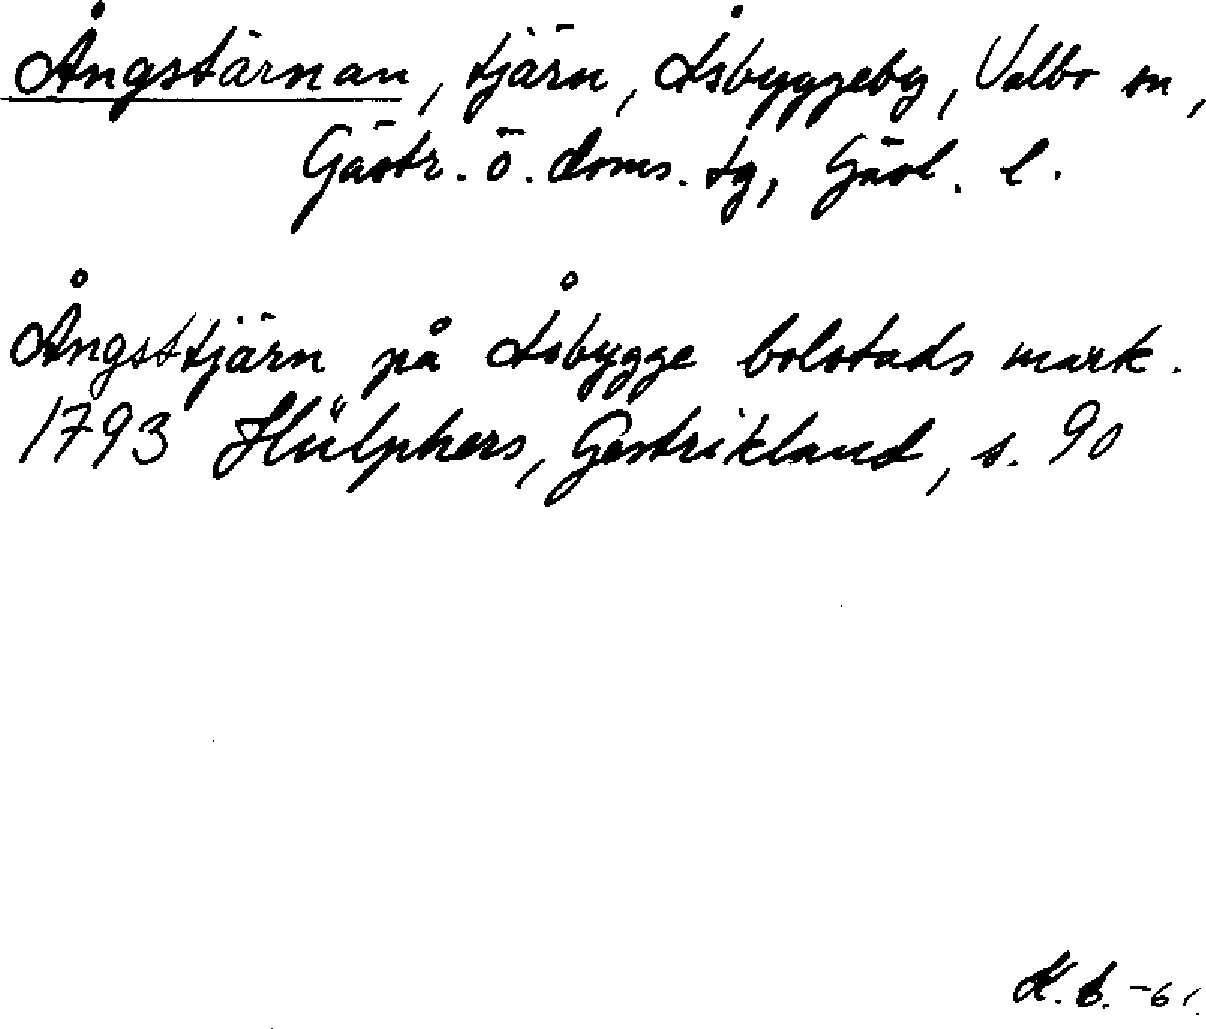 Ångstärnan, tjärn, Åsbyggeby, Valbo sn,
Gästr. ö. doms. tg, Gävl. l.
Ångsttjärn på Åsbygge bolstads mark.
1793 Hülphers, Gestrikland, s. 90
K. C. -61.